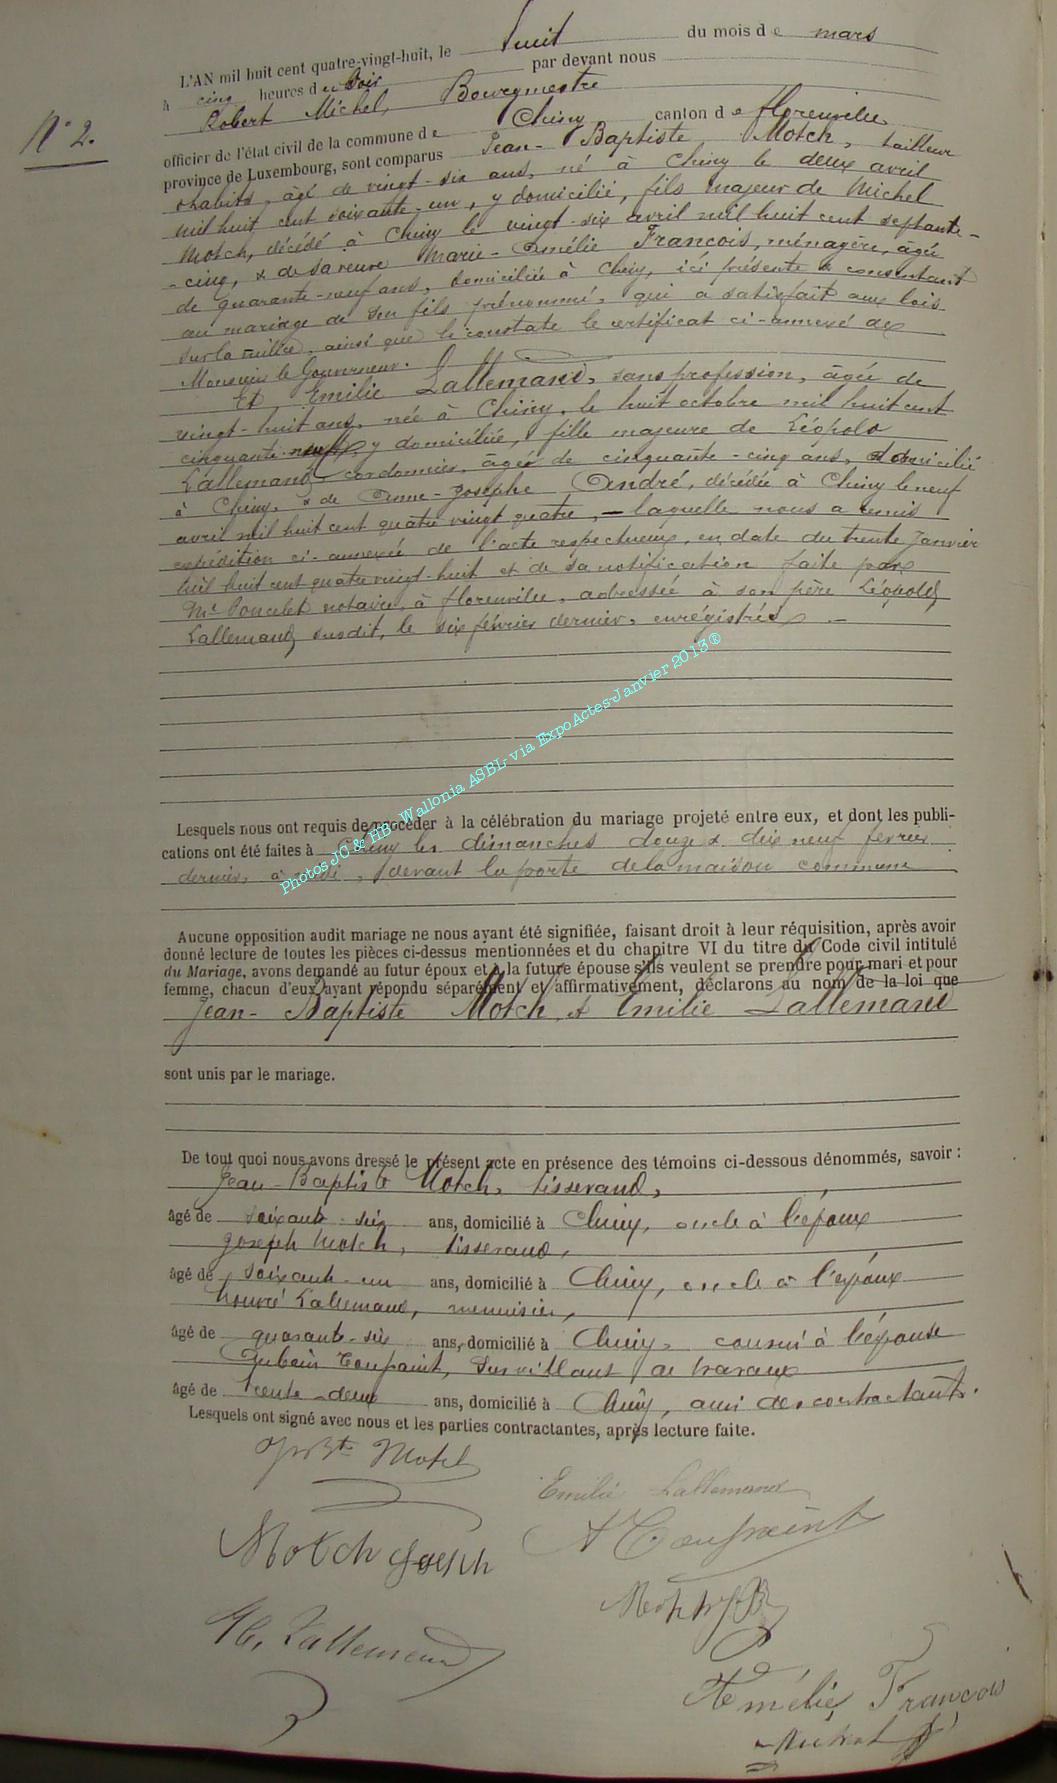 L'AN mil huit cent quatre-vingt-huit, le huit du mois de mars
à cinq heures du soir par devant nous
Robert Michel, Bourgmestre
N° 2.
officier de l'état civil de la commune de Chiny canton de florenville
province de Luxembourg, sont comparus Jean-Baptiste Motch, tailleur
d'habits, âgé de vingt-six ans, né à Chiny le deux avril
mil huit cent soixante-un, y domicilié, fils majeur de Michel
Motch, décédé à Chiny le vingt-six avril mil huit cent septante-
-cinq, & de sa veuve Marie-Amélie Francois, ménagère, âgée
de quarante-neuf ans, domiciliée à Chiny, ici présente & consentant
au mariage de son fils prénommé, qui a satisfait aux lois
sur la milice, ainsi que le constate le certificat ci-annexé de
Monsieur le Gouverneur.
Et Emilie Lallemand, sans profession, âgée de
vingt-huit ans, née à Chiny, le huit octobre mil huit cent
cinquante-neuf, y domiciliée, fille majeure de Léopold
Lallemand, cordonnier, âgé de cinquante-cinq ans, domicilié
à Chiny, & de Anne-Josèphe André, décédée à Chiny le neuf
avril mil huit cent quatre vingt quatre, – laquelle nous a remis
expédition ci-annexée de l'acte respectueux, en date du trente Janvier
mil huit cent quatre vingt-huit et de sa notification faite par
Mr Poncelet notaire, à florenville, adressée à son père Léopold
Lallemand susdit, le six février dernier, enrégistrés. –
Photos JC & HB- Wallonia ASBL- via ExpoActes-Janvier 2013®
Lesquels nous ont requis de procéder à la célébration du mariage projeté entre eux, et dont les publi-
cations ont été faites à Chiny les dimanches douze & dix neuf février
dernier, à midi, devant la porte de la maison commune
Aucune opposition audit mariage ne nous ayant été signifiée, faisant droit à leur réquisition, après avoir
donné lecture de toutes les pièces ci-dessus mentionnées et du chapitre VI du titre du Code civil intitulé
du Mariage, avons demandé au futur époux et à la future épouse s'ils veulent se prendre pour mari et pour
femme, chacun d'eux ayant répondu séparément et affirmativement, déclarons au nom de la loi que
Jean-Baptiste Motch & Emilie Lallemand
sont unis par le mariage.
De tout quoi nous avons dressé le présent acte en présence des témoins ci-dessous dénommés, savoir :
Jean-Baptiste Motch, tisserand,
âgé de soixante-six ans, domicilié à Chiny, oncle à l'époux
Joseph Motch, tisserand,
âgé de soixante-un ans, domicilié à Chiny, oncle à l'époux
Lallemand, menuisier,
âgé de quarante-six ans, domicilié à Chiny, cousin à l'épouse
Toupaint, surveillant de travaux
âgé de trente-deux ans, domicilié à Chiny, ami des contractants.
Lesquels ont signé avec nous et les parties contractantes, après lecture faite.
Jn Bte Motch
Emilie Lallemand
Motch Joseph
A Toupaint
Motch J.B
H. Lallemand
Amélie Francois